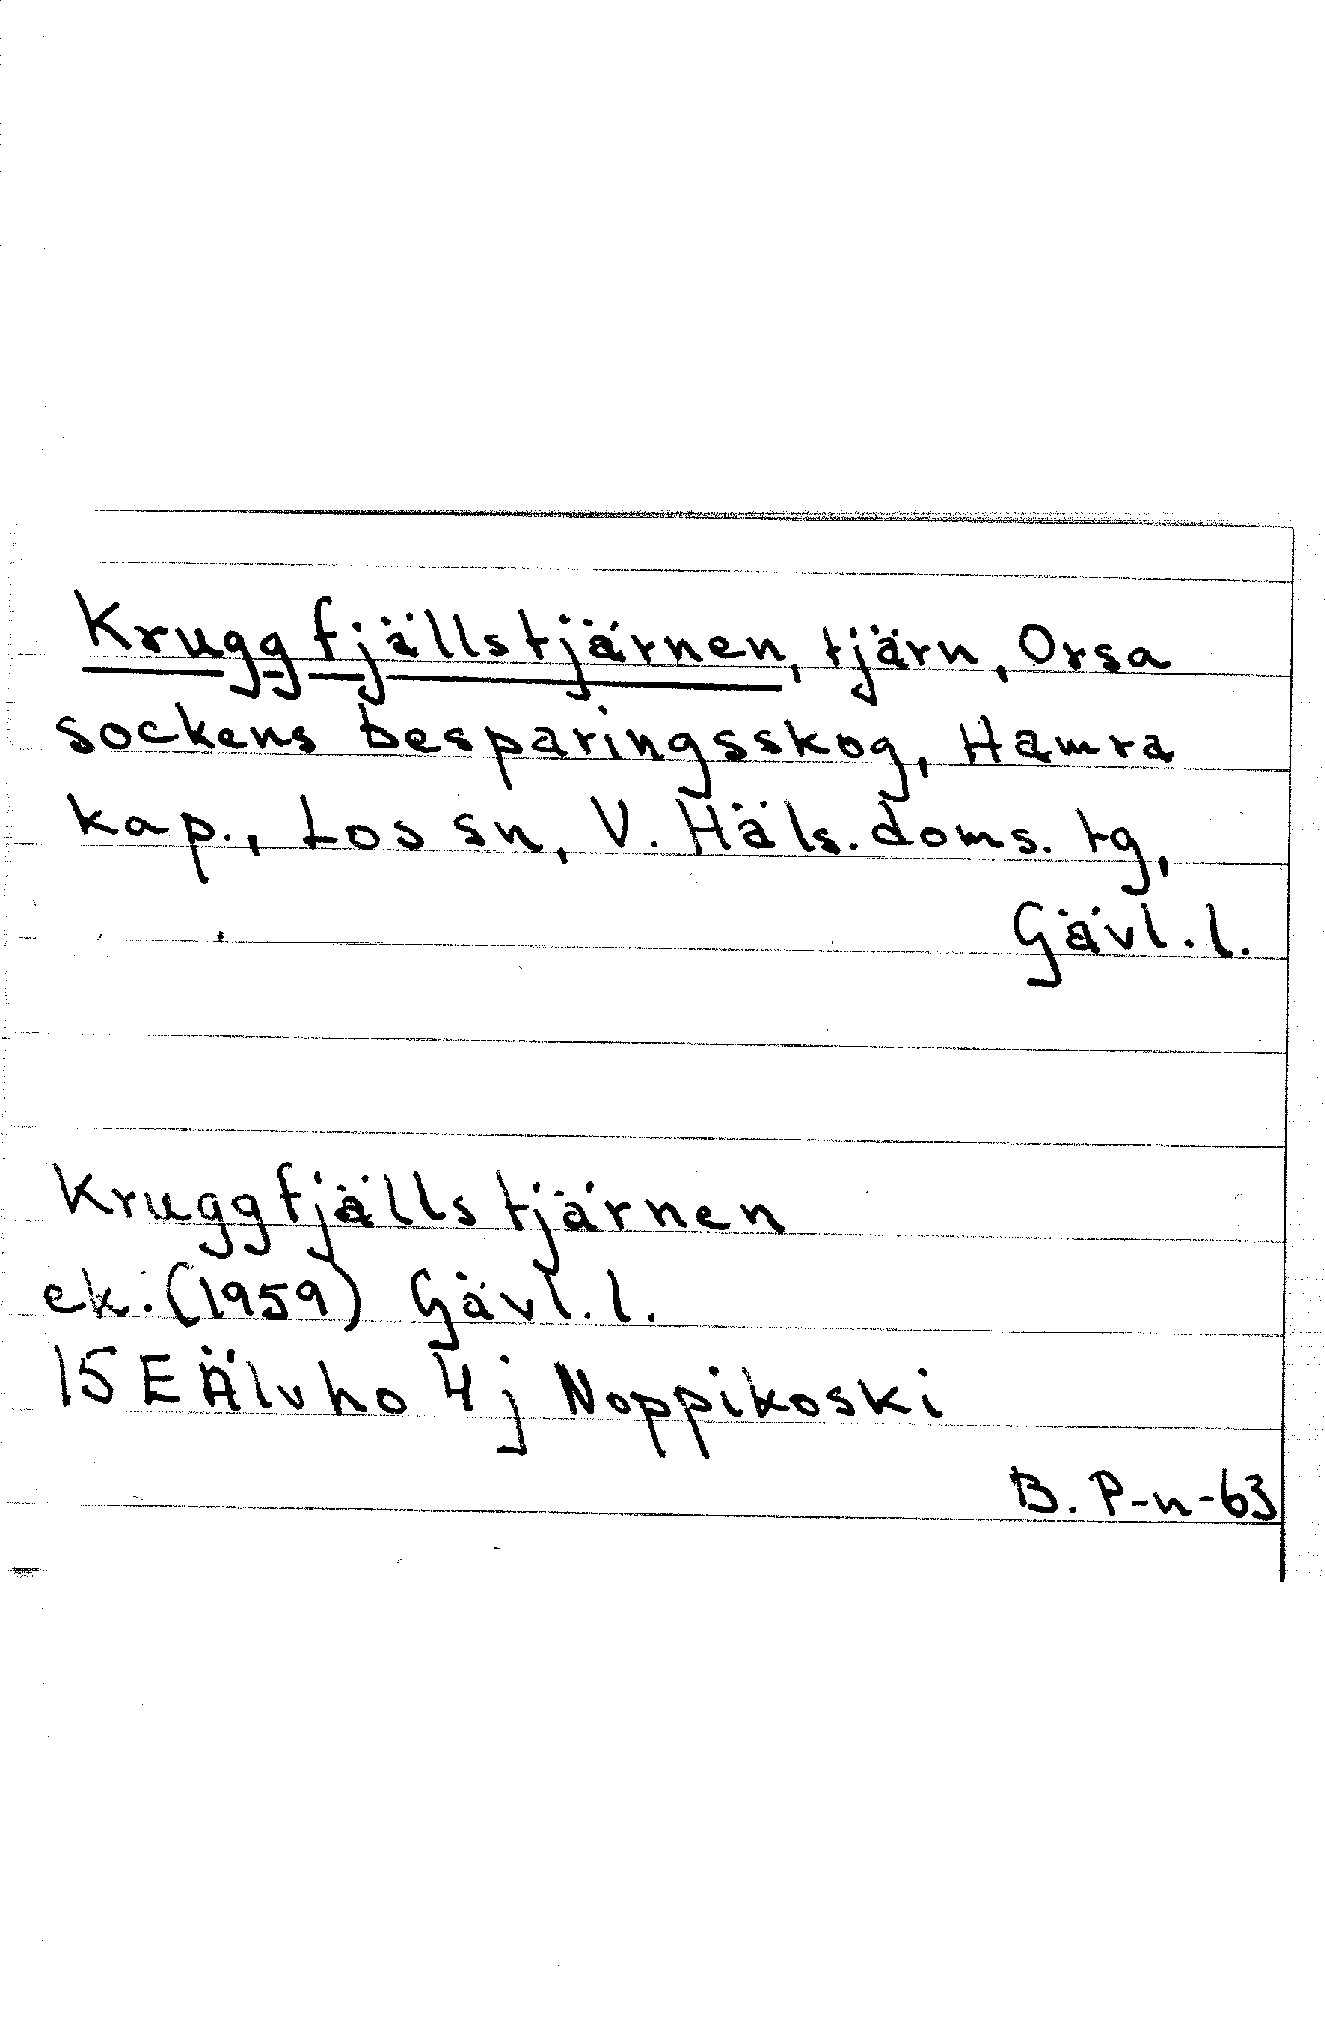 Kruggfjällstjärnen, tjärn, Orsa
sockens besparingsskog, Hamra
kap., Los sn, V. Häls. doms. tg,
Gävl. l.
Kruggfjällstjärnen
ek. (1959) Gävl. l.
15 E Älvho 4 j Noppikoski
B. P-n-63